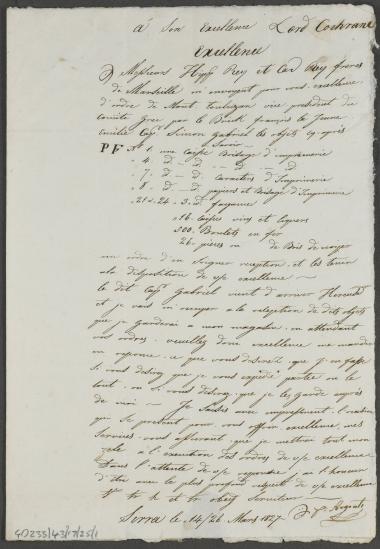 à Son Excellence Lord Cochrane
Excellence
Messieurs Hypp Rey et Ced Rey frères
de Marseille m envoyent pour vous excellence
d'ordre de Mont vice président du
comité Grec par le Brick français le Jeune
Emilie Cap.ne Simon Gabriel les objets cy après
Savoir
PF N° 1. une Caisse Bridage d'imprimerie
" 4. D. D. D. D.
" 7. D. D. Caractères d'Imprimerie
" 8. D. D. papiers et Bridage d'Imprimerie
" 21 a 24. 3. D. fayance
" 16. Caisses vins et liqueurs
300. Boulets en fer
26. pièces de Bois de noyer
en ordre d'en Soigner reception, et les tenir
a la disposition de v/e excellence
le dit Cap.ne Gabriel vient d'arriver
et je vais m occuper a la reception de dits objets
que je garderai a mon magasin, en attendant
vos ordres. veuillez donc excellence me mander
en reponse, ce que vous desirez que j'en fasse
si vous desirez que je vous expédie partie ou le
tout, ou si vous desirez que je les garde auprès
de moi — Je Saisis avec empressement l'occasion
qui se présente pour vous offrir excellence, mes
Services, vous assurant que je mettrai tout mon
zele a l'execution des ordres de v/e excellence
Dans l'attente de v/e reponse, j'ai l'honneur
d'être avec le plus profond respect de v/e excellence
le tr h et tr obeist Serviteur
Sirra le 14/26 Mars 1827
GD233/43/17/25/1